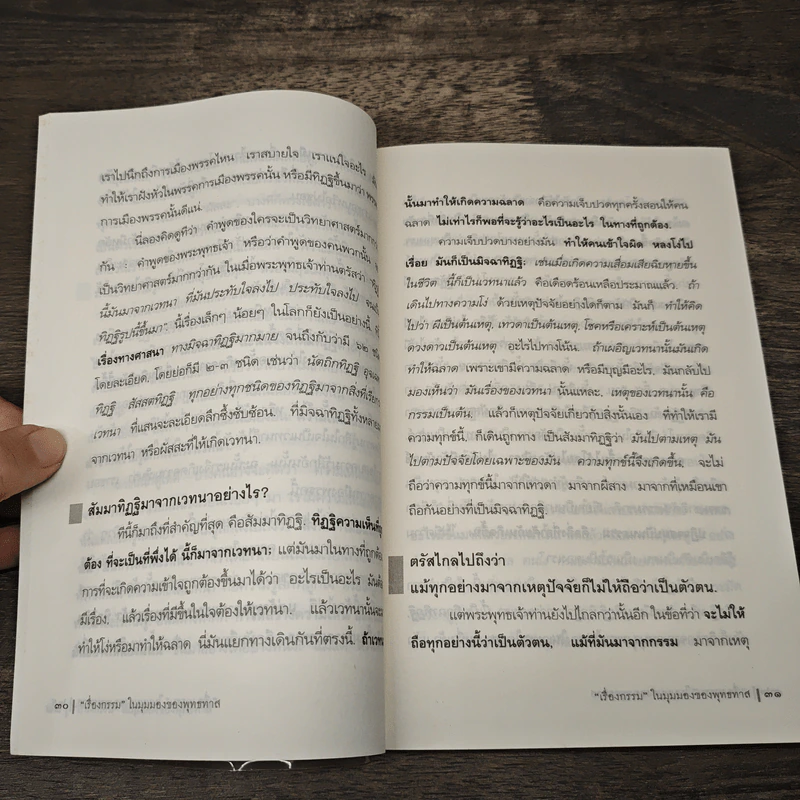 เราไปนึกถึงการเมืองพรรคไหน เราสบายใจ เราแน่ใจอะไร
ทำให้เราฝังหัวในพรรคการเมืองพรรคนั้น หรือมีทิฏฐิขึ้นมาว่า
การเมืองพรรคนั้นดีแน่.
นี่ลองคิดดูทีว่า คำพูดของใครจะเป็นวิทยาศาสตร์มากกว่า
กัน : คำพูดของพระพุทธเจ้า หรือว่าคำพูดของคนพวกนั้น
เป็นวิทยาศาสตร์มากกว่ากัน ในเมื่อพระพุทธเจ้าท่านตรัสว่า
นี้มันมาจากเวทนา ที่มันประทับใจลงไป ประทับใจลงไป
ทิฏฐิรูปนี้ขึ้นมา; นี้เรื่องเล็กๆ น้อยๆ ในโลกก็ยังเป็นอย่างนี้.
เรื่องทางศาสนา ทางมิจฉาทิฏฐิมากมาย จนถึงกับว่ามี ๖๒
โดยละเอียด, โดยย่อก็มี ๒-๓ ชนิด เช่นว่า นัตถิกทิฏฐิ
ทิฏฐิ สัสสตทิฏฐิ ทุกอย่างทุกชนิดของทิฏฐิมาจากสิ่งที่เรียก
เวทนา ที่แสนจะละเอียดลึกซึ้งซับซ้อน. ที่มิจฉาทิฏฐิทั้งหลาย
จากเวทนา หรือผัสสะที่ให้เกิดเวทนา.
สัมมาทิฏฐิมาจากเวทนาอย่างไร?
ทีนี้ก็มาถึงที่สำคัญที่สุด คือสัมมาทิฏฐิ, ทิฏฐิความเห็นที่ถูก
ต้อง ที่จะเป็นที่พึ่งได้ นี้ก็มาจากเวทนา; แต่มันมาในทางที่ถูกต้อง
การที่จะเกิดความเข้าใจถูกต้องขึ้นมาได้ว่า อะไรเป็นอะไร มัน
มีเรื่อง. แล้วเรื่องที่มีขึ้นในใจต้องให้เวทนา. แล้วเวทนานั้น
ทำให้โง่หรือมาทำให้ฉลาด นี่มันแยกทางเดินกันที่ตรงนี้. ถ้าเวทนา
๓๐ | "เรื่องกรรม" ในมุมมองของพุทธทาส
นั้นมาทำให้เกิดความฉลาด คือความเจ็บปวดทุกครั้งสอนให้คน
ฉลาด ไม่เท่าไรก็พอที่จะรู้ว่าอะไรเป็นอะไร ในทางที่ถูกต้อง.
ความเจ็บปวดบางอย่างมัน ทำให้คนเข้าใจผิด หลงโง่ไป
เรื่อย มันก็เป็นมิจฉาทิฏฐิ; เช่นเมื่อเกิดความเสื่อมเสียฉิบหายขึ้น
ในชีวิต นี้ก็เป็นเวทนาแล้ว คือเดือดร้อนเหลือประมาณแล้ว. ถ้า
เดินไปทางความโง่ ด้วยเหตุปัจจัยอย่างใดก็ตาม มันก็ ทำให้คิด
ไปว่า ผีเป็นต้นเหตุ, เทวดาเป็นต้นเหตุ, โชคหรือเคราะห์เป็นต้นเหตุ
ดวงดาวเป็นต้นเหตุ อะไรไปทางโน้น. ถ้าเผอิญเวทนานั้นมันเกิด
ทำให้ฉลาด เพราะเขามีความฉลาด หรือมีบุญมีอะไร, มันกลับไป
มองเห็นว่า มันเรื่องของเวทนา นั้นแหละ, เหตุของเวทนานั้น คือ
กรรมเป็นต้น. แล้วก็เหตุปัจจัยเกี่ยวกับสิ่งนั้นเอง ที่ทำให้เรามี
ความทุกข์นี้. ก็เดินถูกทาง เป็นสัมมาทิฏฐิว่า มันไปตามเหตุ มัน
ไปตามปัจจัยโดยเฉพาะของมัน ความทุกข์นี้จึงเกิดขึ้น. จะไม่
ถือว่าความทุกข์นี้มาจากเทวดา มาจากผีสาง มาจากที่เหมือนเขา
ถือกันอย่างที่เป็นมิจฉาทิฏฐิ.
ตรัสไกลไปถึงว่า
แม้ทุกอย่างมาจากเหตุปัจจัยก็ไม่ให้ถือว่าเป็นตัวตน.
แต่พระพุทธเจ้าท่านยังไปไกลกว่านั้นอีก ในข้อที่ว่า จะไม่ให้
ถือทุกอย่างนี้ว่าเป็นตัวตน, แม้ที่มันมาจากกรรม มาจากเหตุ
"เรื่องกรรม" ในมุมมองของพุทธทาส | ๓๑